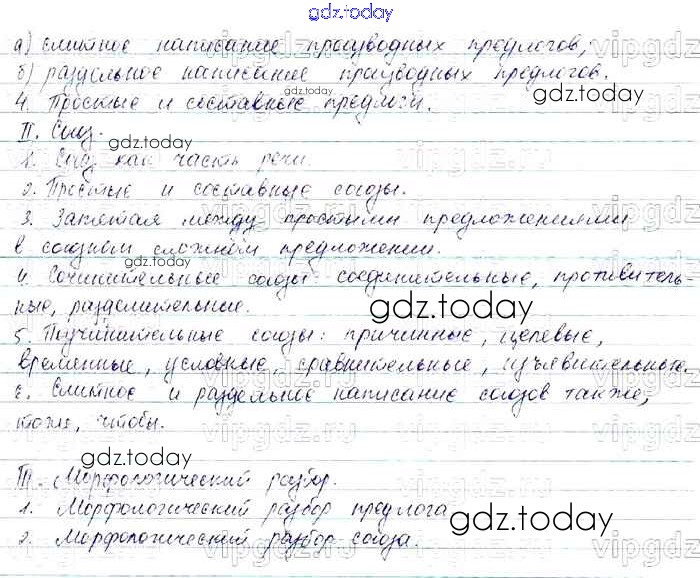 gdz.today
а) слитное написание производных предлогов;
б) раздельное написание производных предлогов.
4. Простые и составные предлоги.
gdz.today
gdz.today
II. Союз.
1. Союз как часть речи.
2. Простые и составные союзы.
3. Запятая между простыми предложениями
в союзном сложном предложении.
4. Сочинительные союзы: соединительные, противитель-
ные, разделительные.
gdz.today
5. Подчинительные союзы: причинные, целевые,
временные, условные, сравнительные, изъявительные.
6. Слитное и раздельное написание союзов также,
тоже, чтобы.
gdz.today
III. Морфологический разбор.
1. Морфологический разбор предлога
gdz.today
2. Морфологический разбор союза.